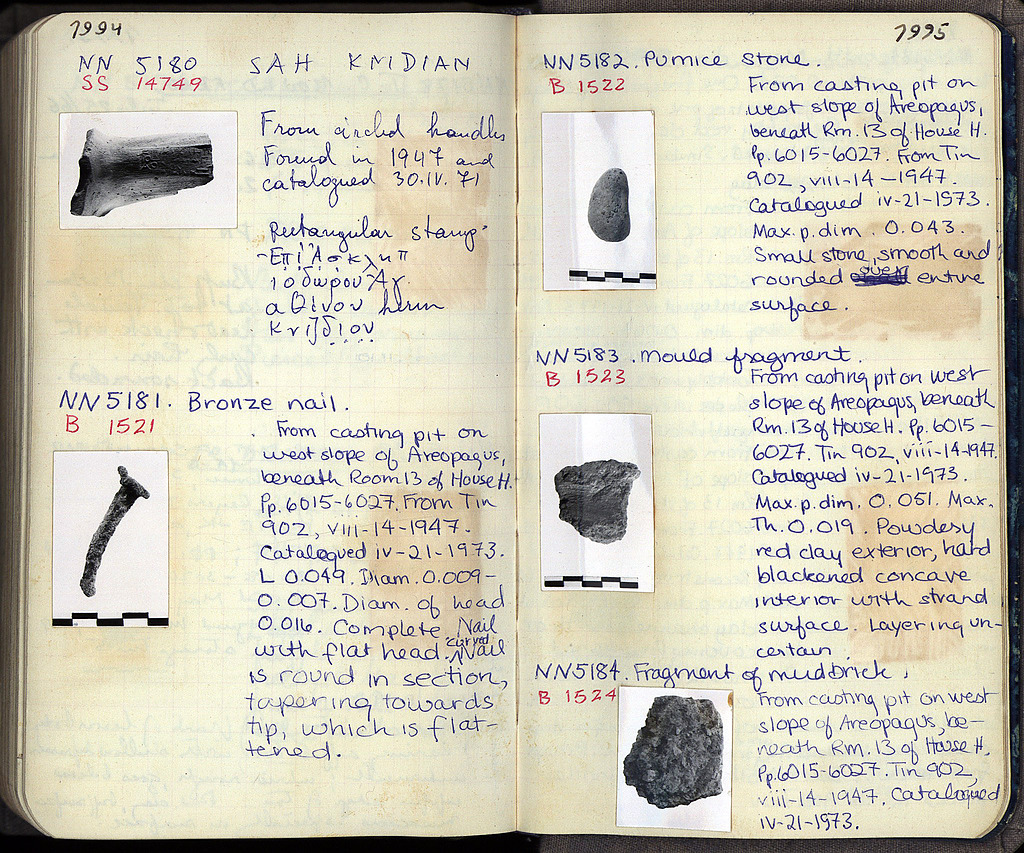 1994
NN 5180 SAH KNIDIAN
SS 14749
From circled handles
Found in 1947 and
catalogued 30.IV.71
Rectangular stamp
Ἐπὶ Ἀσκληπ
ιοδώρου Ἁγ
αθίνου herm
Κνιδίον
NN 5181. Bronze nail.
B 1521
From casting pit on
west slope of Areopagus,
beneath Room 13 of House H.
Pp. 6015-6027. From Tin
902, viii-14-1947.
Catalogued iv-21-1973.
L 0.049. Diam. 0.009-
0.007. Diam. of head
0.016. Complete. Nail
with flat head. curved Nail
is round in section,
tapering towards
tip, which is flat-
tened.
1995
NN5182. Pumice stone.
B 1522
From casting pit on
west slope of Areopagus,
beneath Rm. 13 of House H.
Pp. 6015-6027. From Tin
902, viii-14-1947.
Catalogued iv-21-1973.
Max. p. dim. 0.043.
Small stone, smooth and
rounded over entire
surface.
NN5183. Mould fragment.
B 1523
From casting pit on west
slope of Areopagus, beneath
Rm. 13 of House H. Pp. 6015-
6027. Tin 902, viii-14-1947.
Catalogued iv-21-1973.
Max. p. dim. 0.051. Max.
Th. 0.019. Powdery
red clay exterior, hard
blackened concave
interior with strand
surface. Layering un-
certain.
NN5184. Fragment of mudbrick.
B 1524
From casting pit on west
slope of Areopagus, be-
neath Rm. 13 of House H.
Pp. 6015-6027. Tin 902,
viii-14-1947. Catalogued
iv-21-1973.